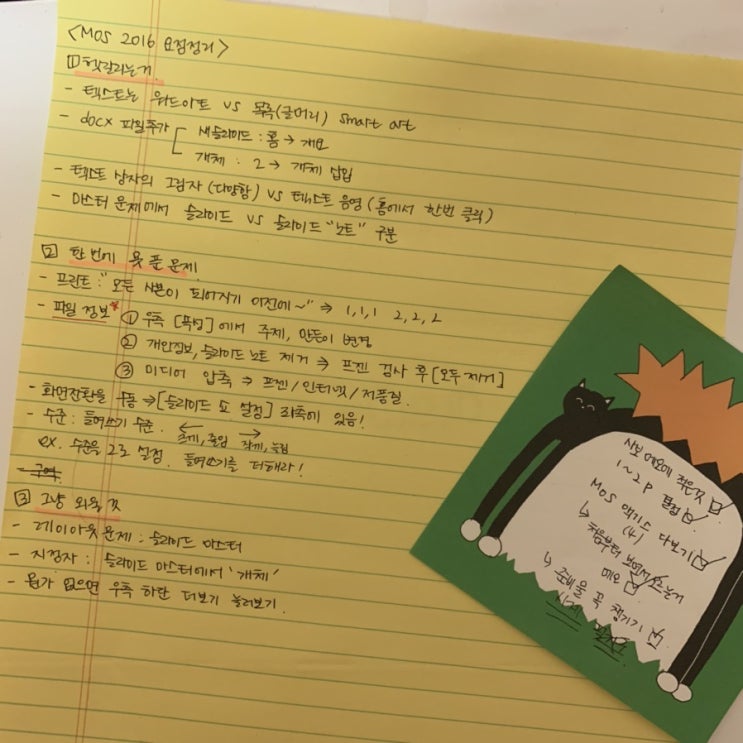 <MOS 2016 요점정리>
1 헷갈리는거.
- 텍스트는 워드아트 vs 목록(글머리) smart art
- docx 파일추가 [ 새 슬라이드 : 홈 → 개요
개체 : 2 → 개체 삽입
- 텍스트 상자의 그림자 (다양함) vs 텍스트 음영 (홈에서 한번 클릭)
- 마스터 문제에서 슬라이드 vs 슬라이드 "노트" 구분
2 한번에 못 푼 문제
- 프린트 : "모든 사본이 되어지기 이전에~" ⇒ 1,1,1 2,2,2
- 파일 정보* ① 우측 [속성]에서 주제, 만든이 변경
② 개인정보, 슬라이드 노트 제거 ⇒ 프젠 검사 후 [모두 제거]
③ 미디어 압축 ⇒ 프젠/인터넷/저품질.
- 화면전환을 수동 ⇒ [슬라이드 쇼 설정] 좌측에 있음!
- 수준 : 들여쓰기 수준. ← →
크게, 줄임 작게, 늘림
ex. 수준을 2로 설정. 들여쓰기를 더해라!
3 그냥 외울 것
- 레이아웃 문제 : 슬라이드 마스터
- 지정자 : 슬라이드 마스터에서 '개체'
- 뭔가 없으면 우측 하단 더보기 눌러보기.
사보 메모에 적은것
1~2P 점검
MOS 엑기스 다보기
(4)
↳ 처음부터 보면서
메모
↳ 준비물 꼭 챙기기